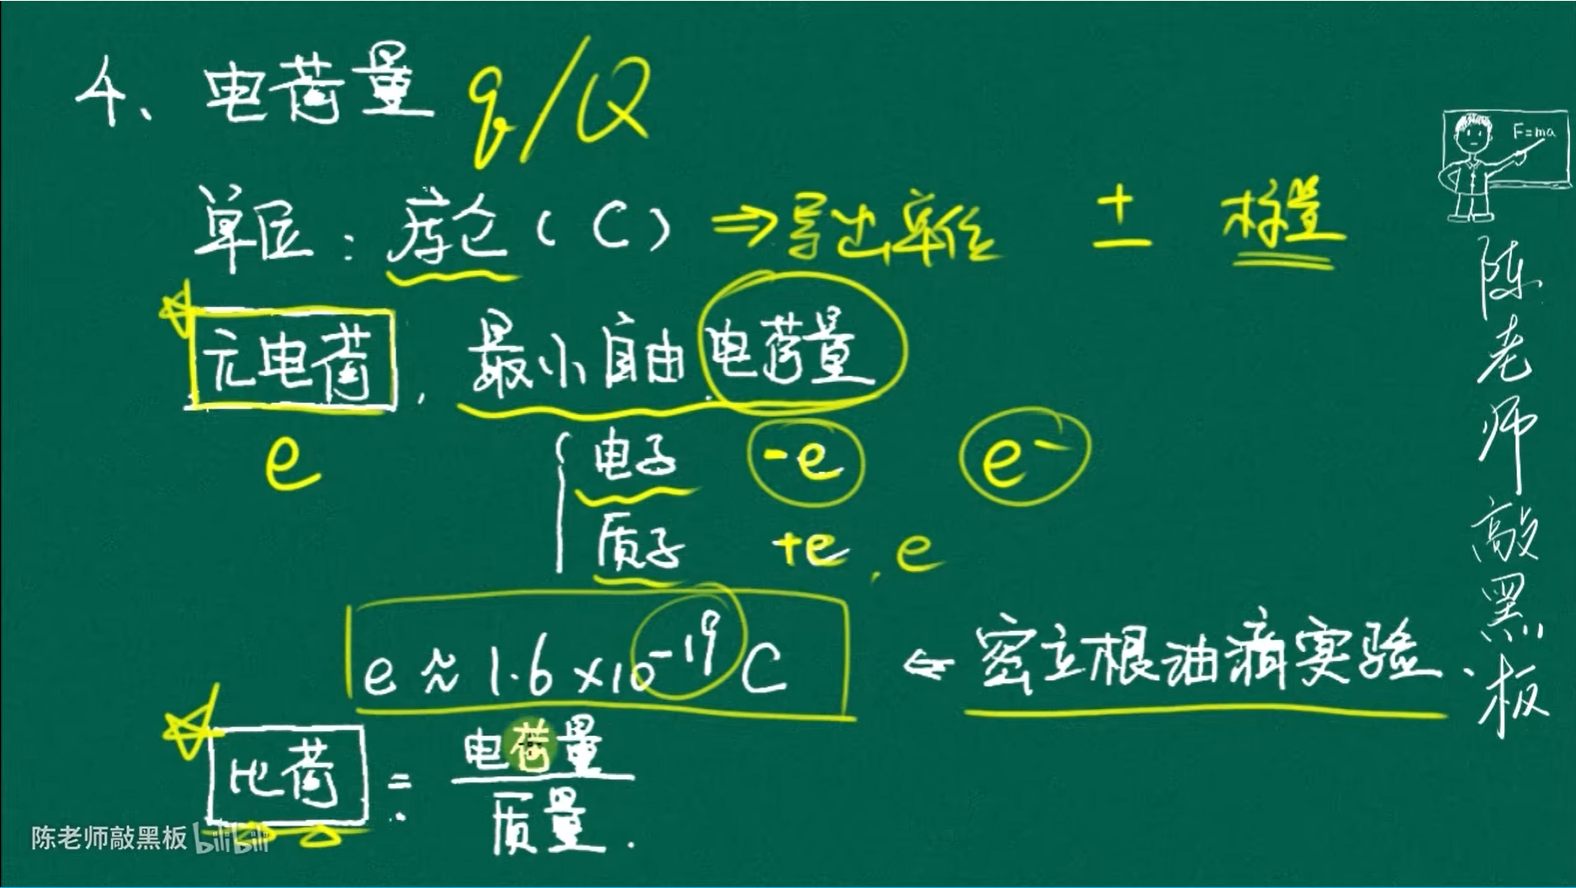 4、电荷量 q/Q
单位：库仑(C) ⇒导出单位 ± 标量
元电荷，最小自由电荷量
e
电子 -e e⁻
质子 +e, e
e≈1.6×10⁻¹⁹C ← 密立根油滴实验.
比荷 = 电荷量/质量.
F=ma
陈老师敲黑板
陈老师敲黑板 bilibili